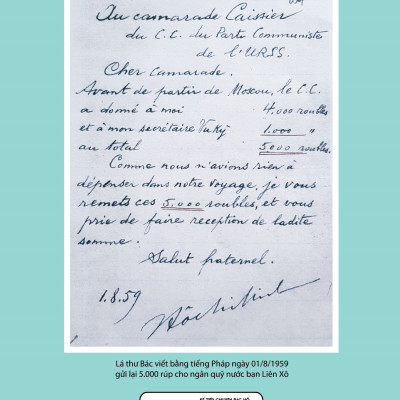 Au camarade Caissier
du C.C. du Parti Communiste
de l'URSS.
Cher Camarade.
Avant de partir de Moscou, le C.C.
a donné à moi 4.000 roubles
et à mon secrétaire Vu Kỳ 1.000 "
au total 5000 roubles.
Comme nous n'avions rien à
dépenser dans notre voyage, je vous
remets ces 5.000 roubles, et vous
prie de faire reception de ladite
somme.
Salut fraternel.
1.8.59
Hôchiminh
Lá thư Bác viết bằng tiếng Pháp ngày 01/8/1959
gửi lại 5.000 rúp cho ngân quỹ nước bạn Liên Xô